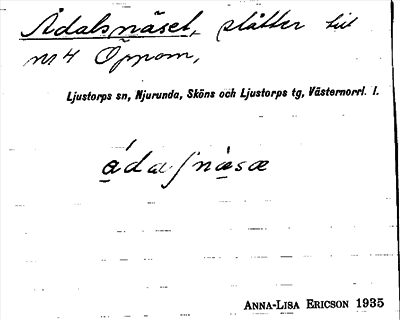 Ådalsnäset, slåtter till
nr 4 Öppom,
Ljustorps sn, Njurunda, Sköns och Ljustorps tg, Västernorrl. l.
ádaʃnæ̀sæ
ANNA-LISA ERICSON 1935